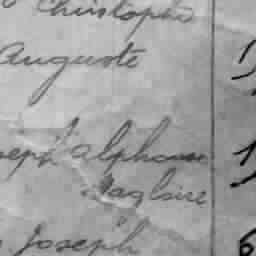 Christophe
Auguste
seph Alphonse
Magloire
Joseph